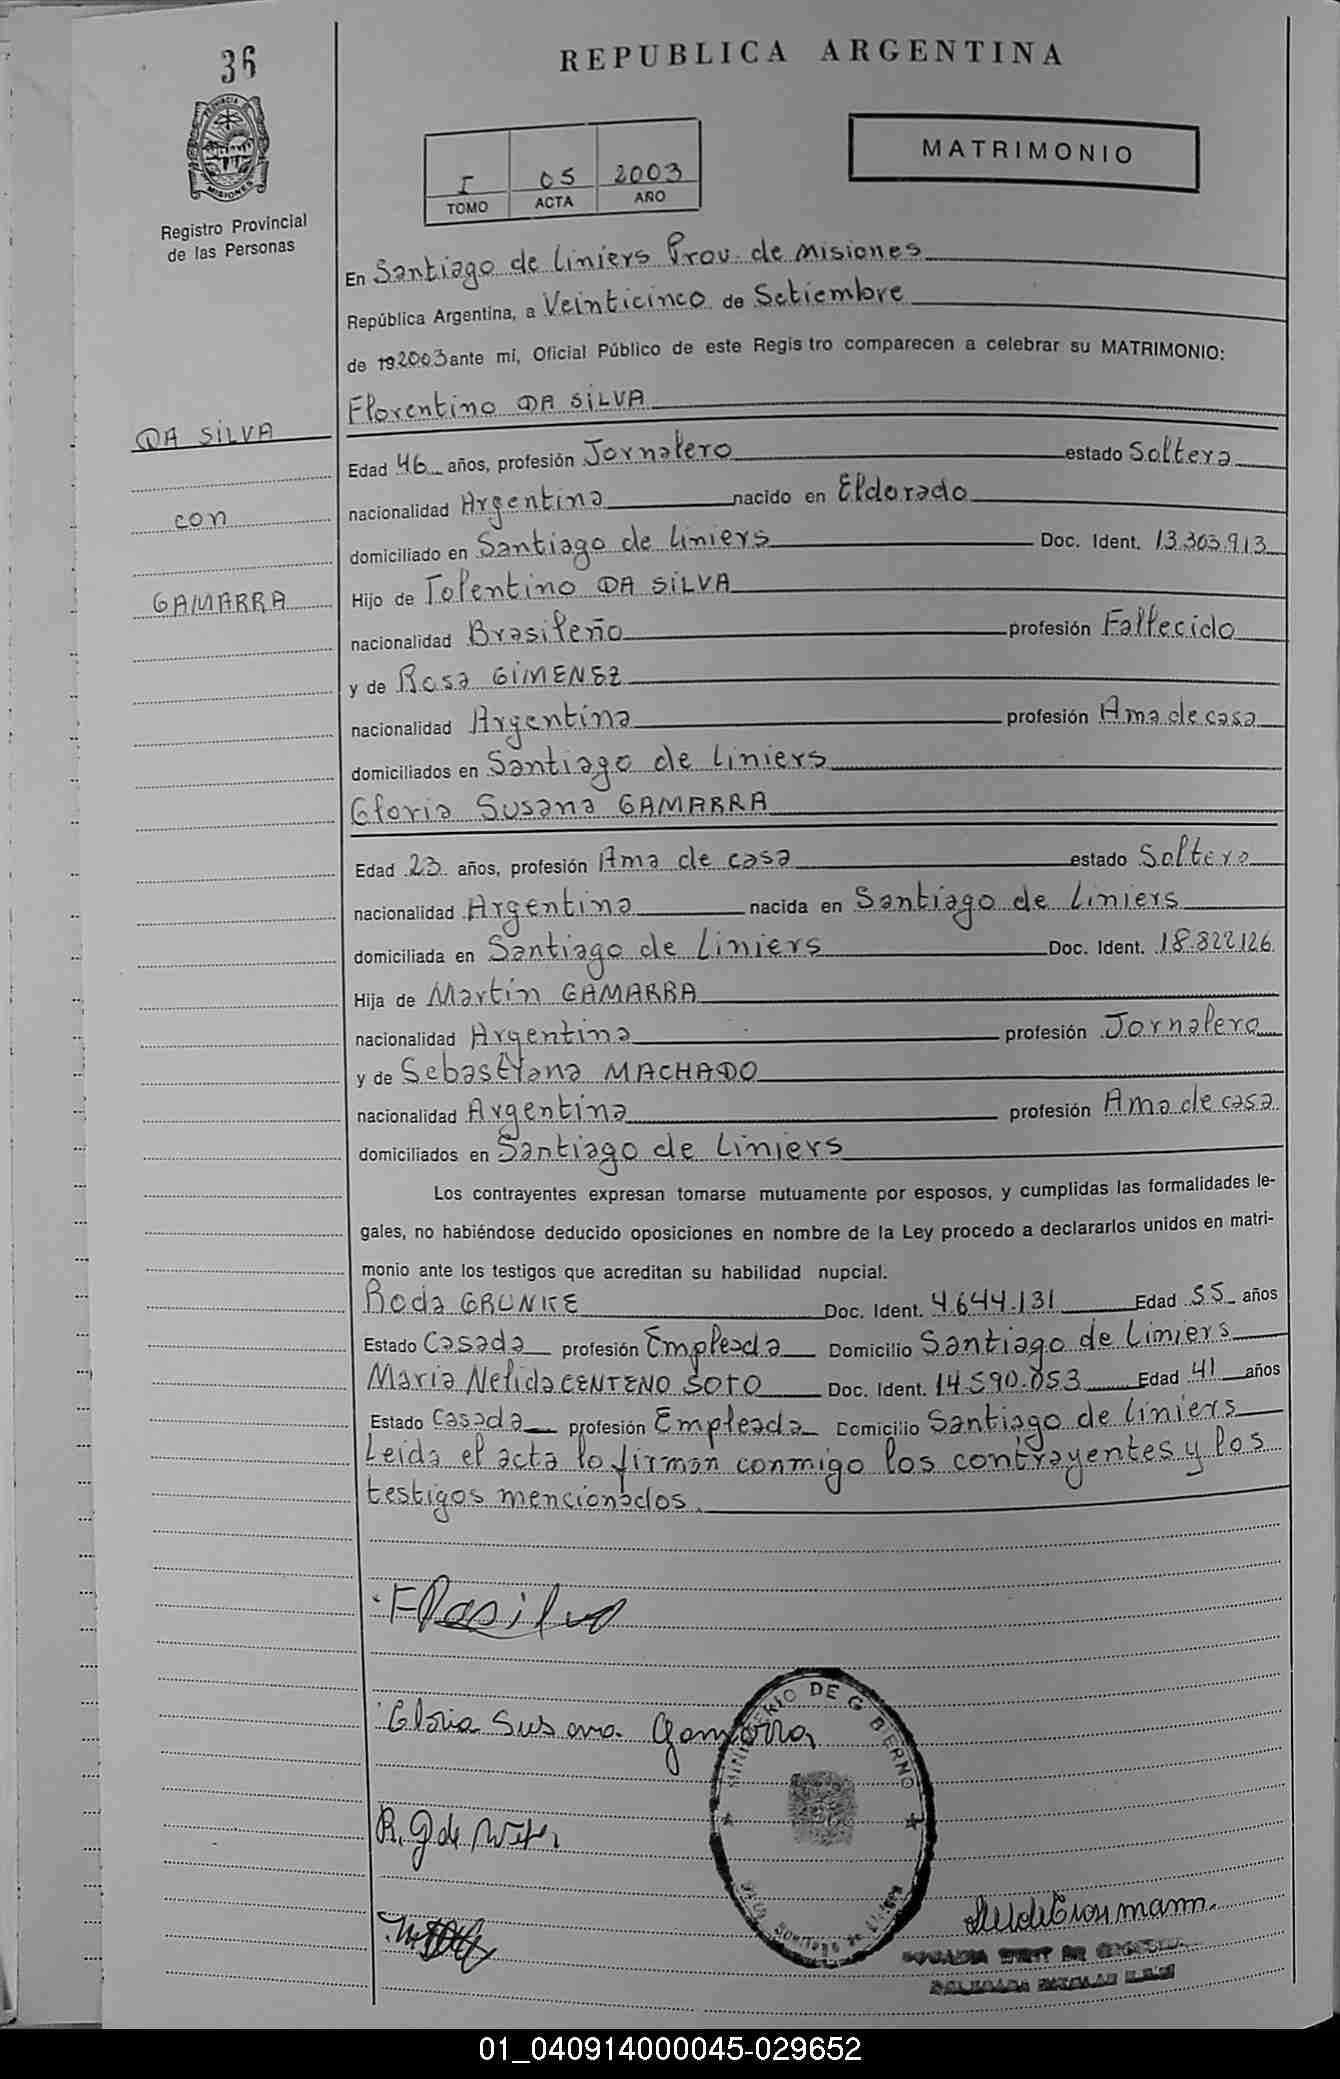 36
REPUBLICA ARGENTINA
PROVINCIA DE
MISIONES
Registro Provincial
de las Personas
MATRIMONIO
I 05 2003
TOMO ACTA AÑO
En Santiago de Liniers Prov. de Misiones
República Argentina, a Veinticinco de Setiembre
de 192003 ante mí, Oficial Público de este Registro comparecen a celebrar su MATRIMONIO:
Florentino DA SILVA
DA SILVA
Edad 46 años, profesión Jornalero estado Soltero
con
nacionalidad Argentina nacido en Eldorado
domiciliado en Santiago de Liniers Doc. Ident. 13.303.913
GAMARRA
Hijo de Tolentino DA SILVA
nacionalidad Brasileño profesión Fallecido
y de Rosa GIMENEZ
nacionalidad Argentina profesión Ama de casa
domiciliados en Santiago de Liniers
Gloria Susana GAMARRA
Edad 23 años, profesión Ama de casa estado Soltera
nacionalidad Argentina nacida en Santiago de Liniers
domiciliada en Santiago de Liniers Doc. Ident. 18.822.126
Hija de Martin GAMARRA
nacionalidad Argentina profesión Jornalero
y de Sebastiana MACHADO
nacionalidad Argentina profesión Ama de casa
domiciliados en Santiago de Liniers
Los contrayentes expresan tomarse mutuamente por esposos, y cumplidas las formalidades le-
gales, no habiéndose deducido oposiciones en nombre de la Ley procedo a declararlos unidos en matri-
monio ante los testigos que acreditan su habilidad nupcial.
Roda GRUNKE Doc. Ident. 4.644.131 Edad 55 años
Estado Casada profesión Empleada Domicilio Santiago de Liniers
Maria Nelida CENTENO SOTO Doc. Ident. 14.590.053 Edad 41 años
Estado Casada profesión Empleada Domicilio Santiago de Liniers
Leida el acta lo firman conmigo los contrayentes y los
testigos mencionados.
F Dasilva
Gloria Susana Gamarra
MINISTERIO DE G BIERNO
R. G de
01_040914000045-029652